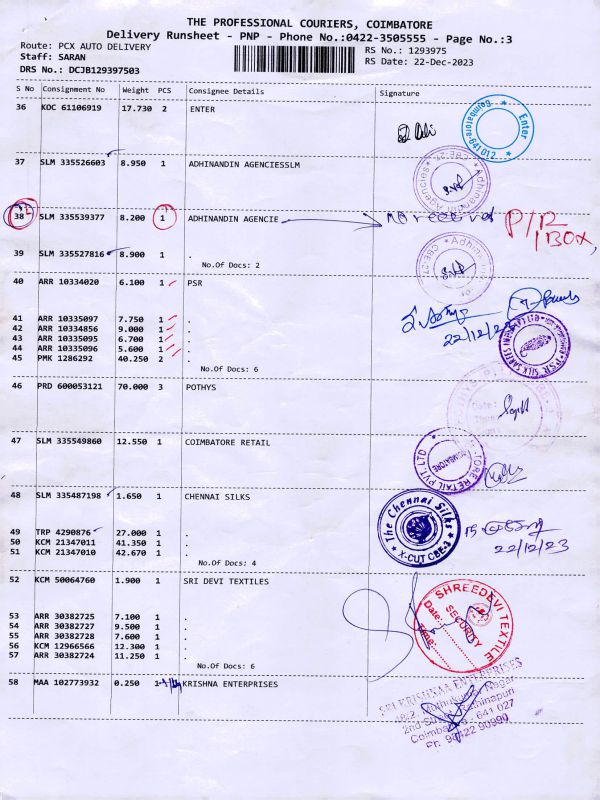 THE PROFESSIONAL COURIERS, COIMBATORE
Delivery Runsheet - PNP - Phone No.:0422-3505555 - Page No.:3
Route: PCX AUTO DELIVERY
RS No.: 1293975
Staff: SARAN
RS Date: 22-Dec-2023
DRS No.: DCJB129397503
S No Consignment No Weight PCS Consignee Details Signature
36 KOC 61106919 17.730 2 ENTER
Enter
Coimbatore-641 012
37 SLM 335526603 8.950 1 ADHINANDIN AGENCIESSLM
38 SLM 335539377 8.200 1 ADHINANDIN AGENCIE
P/R
1 BOX,
39 SLM 335527816 8.900 1 .
No.Of Docs: 2
40 ARR 10334020 6.100 1 PSR
22/12/23
41 ARR 10335097 7.750 1 .
42 ARR 10334856 9.000 1 .
43 ARR 10335095 6.700 1 .
44 ARR 10335096 5.600 1 .
45 PMK 1286292 40.250 2 .
No.Of Docs: 6
46 PRD 600053121 70.000 3 POTHYS
47 SLM 335549860 12.550 1 COIMBATORE RETAIL
48 SLM 335487198 1.650 1 CHENNAI SILKS
The Chennai Silks
X-CUT CBE-3
22/12/23
49 TRP 4290876 27.000 1 .
50 KCM 21347011 41.350 1 .
51 KCM 21347010 42.670 1 .
No.Of Docs: 4
52 KCM 50064760 1.900 1 SRI DEVI TEXTILES
SHREEDEVI TEXTILE
Date:
SECURITY
Time:
53 ARR 30382725 7.100 1 .
54 ARR 30382727 9.500 1 .
55 ARR 30382728 7.600 1 .
56 KCM 12966566 12.300 1 .
57 ARR 30382724 11.250 1 .
No.Of Docs: 6
58 MAA 102773932 0.250 KRISHNA ENTERPRISES
SRI KRISHNAA ENTERPRISES
Coimbatore - 641 027
Ph: 98422 90990